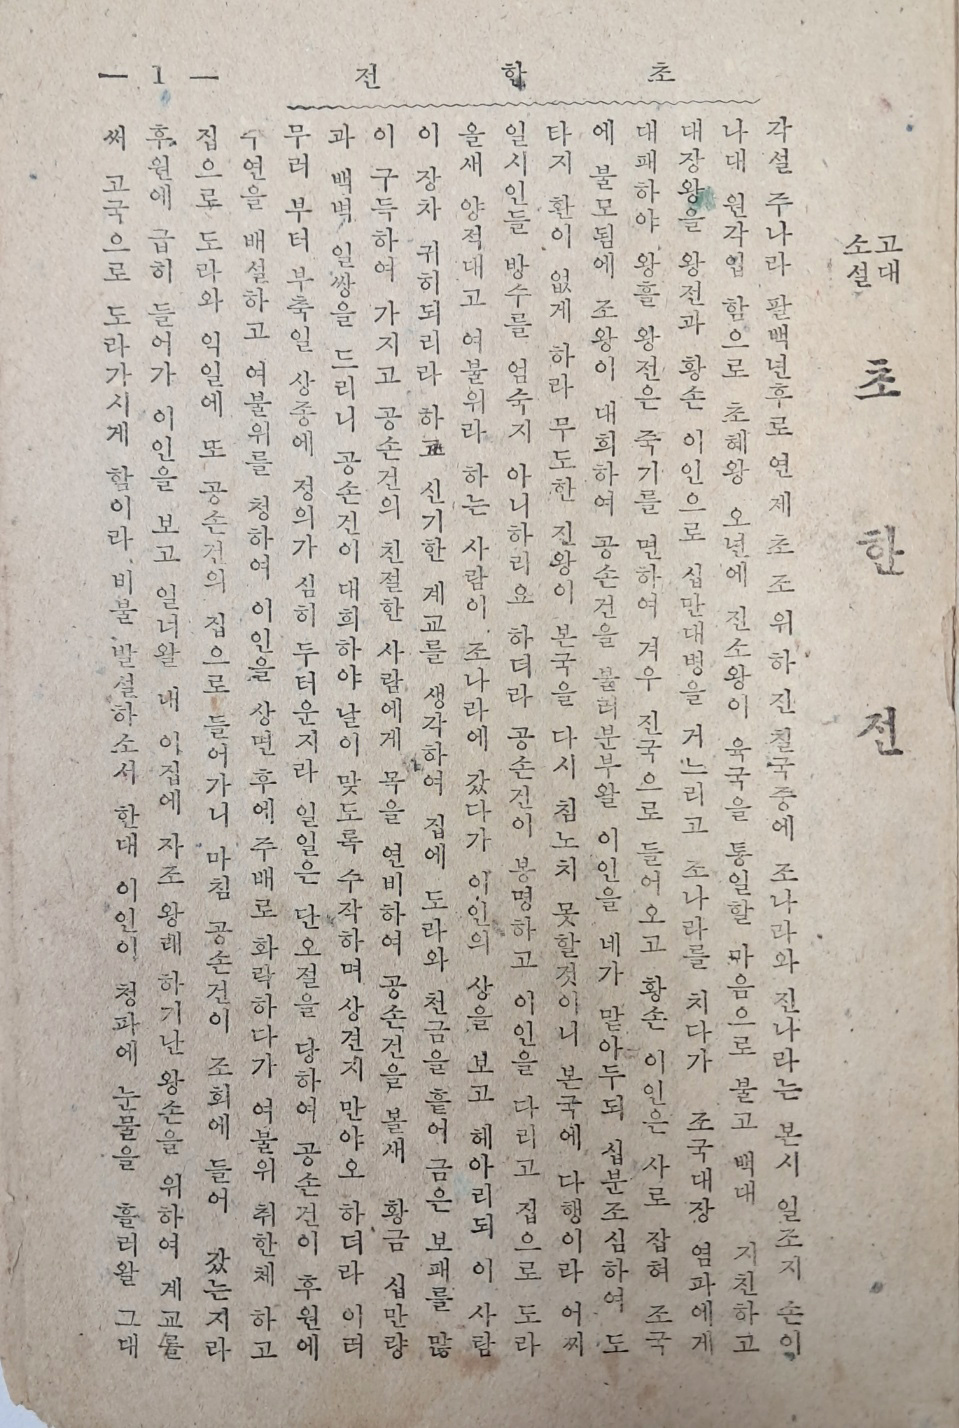 고대
소설
초한전
초한전
— 1 —
각설 주나라 팔백년후로 연 제 초 조 위 하 진 칠국중에 조나라와 진나라는 본시 일조지 손이
나대 원각입 함으로 초혜왕 오년에 진소왕이 육국을 통일할 마음으로 불고 백대 지친하고
대장왕을 왕전과 황손 이인으로 십만대병을 거느리고 조나라를 치다가 조국대장 염파에게
대패하야 왕흘 왕전은 죽기를 면하여 겨우 진국으로 들어오고 황손 이인은 사로 잡혀 조국
에 불모됨에 조왕이 대희하여 공손건을 불러분부왈 이인을 네가 맡아두되 십분조심하여 도
타지 환이 없게 하라 무도한 진왕이 본국을 다시 침노치 못할것이니 본국에 다행이라 어찌
일시인들 방수를 엄숙지 아니하리요 하더라 공손건이 봉명하고 이인을 다리고 집으로 도라
올새 양적대고 여불위라 하는 사람이 조나라에 갔다가 이인의 상을 보고 헤아리되 이 사람
이 장차 귀히되리라 하고 신기한 계교를 생각하여 집에 도라와 천금을 흩어 금은 보패를 많
이 구득하여 가지고 공손건의 친절한 사람에게 목을 연비하여 공손건을 볼새 황금 십만량
과 백벽 일쌍을 드리니 공손건이 대희하야 날이 맞도록 수작하며 상견지 만야오 하더라 이러
무러 부터 부축일 상종에 정의가 심히 두터운지라 일일은 단오절을 당하여 공손건이 후원에
수연을 배설하고 여불위를 청하여 이인을 상면 후에 주배로 화락하다가 여불위 취한체 하고
집으로 도라와 익일에 또 공손건의 집으로 들어가니 마침 공손건이 조회에 들어 갔는지라
후원에 급히 들어가 이인을 보고 일너왈 내 이집에 자조 왕래 하기난 왕손을 위하여 계교를
써 고국으로 도라가시게 함이라 비불 발설하소서 한대 이인이 청파에 눈물을 흘러왈 그대